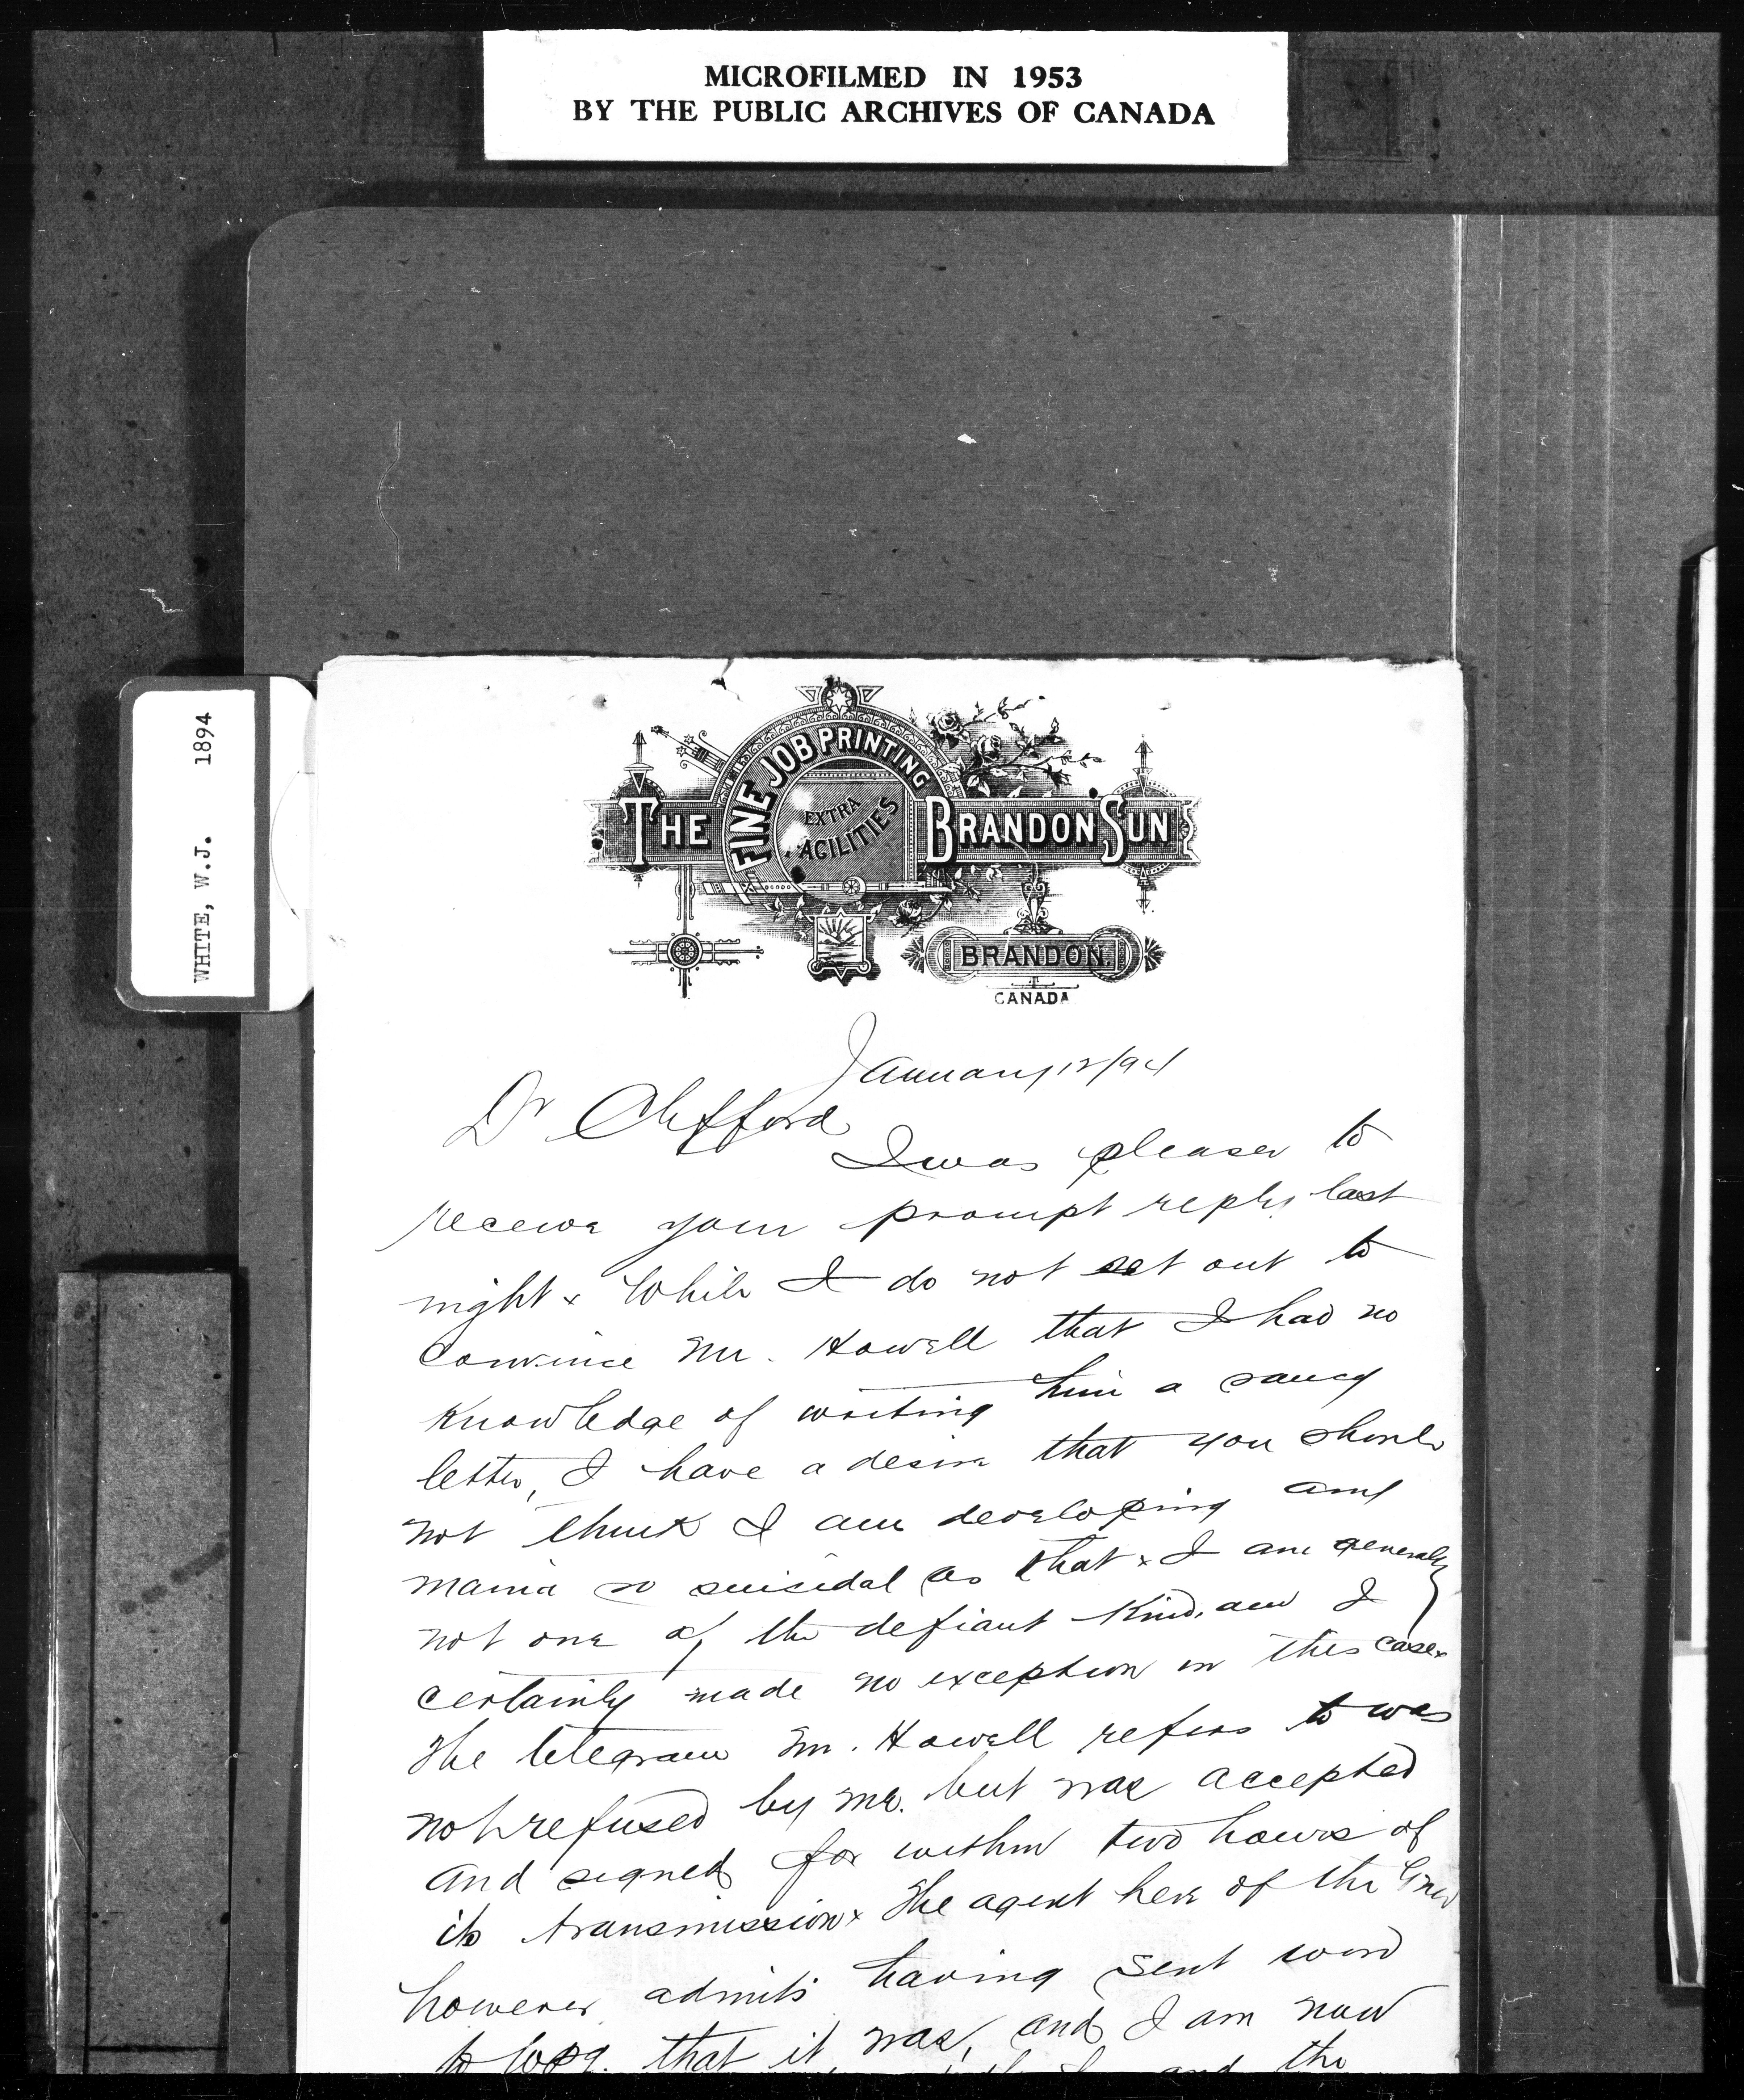 MICROFILMED IN 1953
BY THE PUBLIC ARCHIVES OF CANADA
WHITE, W.J. 1894
THE BRANDON SUN
FINE JOB PRINTING
EXTRA
FACILITIES
BRANDON.
CANADA
January 12/94
Dr Clifford
I was pleased to
receive your prompt reply last
night x While I do not set out to
convince Mr. Howell that I had no
knowledge of writing him a saucy
letter, I have a desire that you should
not think I am developing any
mania so suicidal as that x I am generally
not one of the defiant kind, and I
certainly made no exception in this case x
The telegram Mr. Howell refers to was
not refused by me. but was accepted
and signed for within two hours of
its transmission x The agent here of the
however admits having sent word
to Wpg. that it was, and I am now
and the